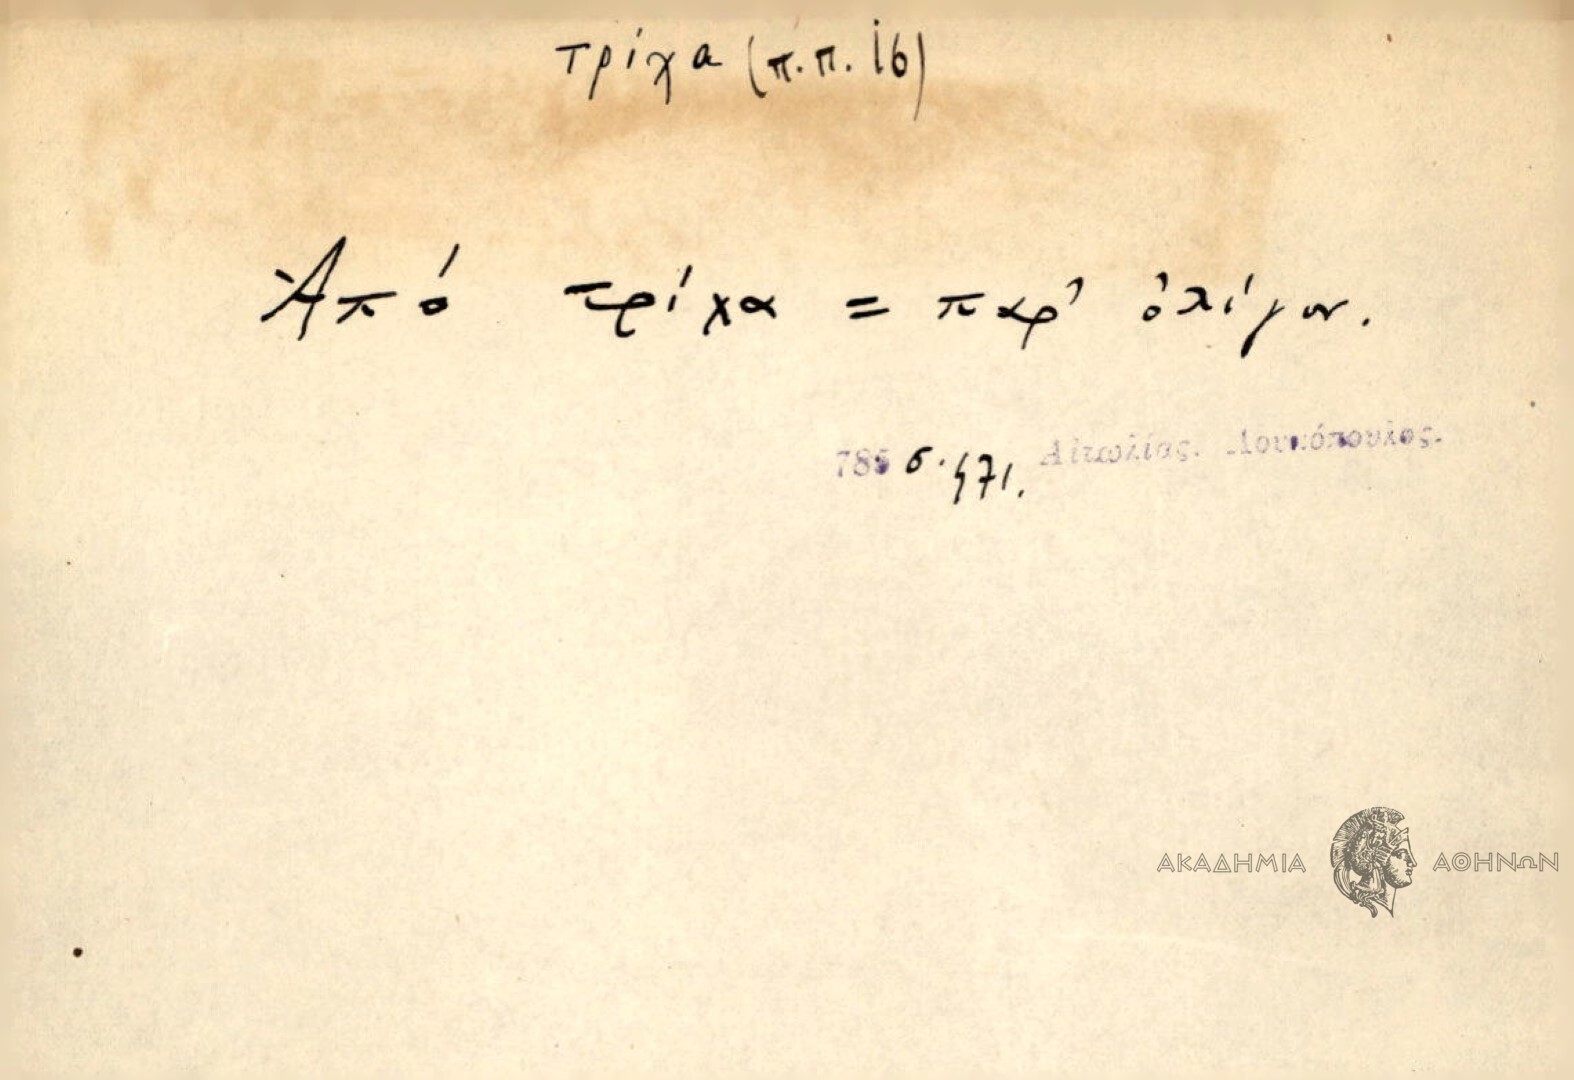 τρίχα (π.π. 16)
Ἀπό τρίχα = παρ' ὀλίγον.
785 σ. 471. Αἰτωλίας. Λουκόπουλος.
ΑΚΑΔΗΜΙΑ ΑΘΗΝΩΝ